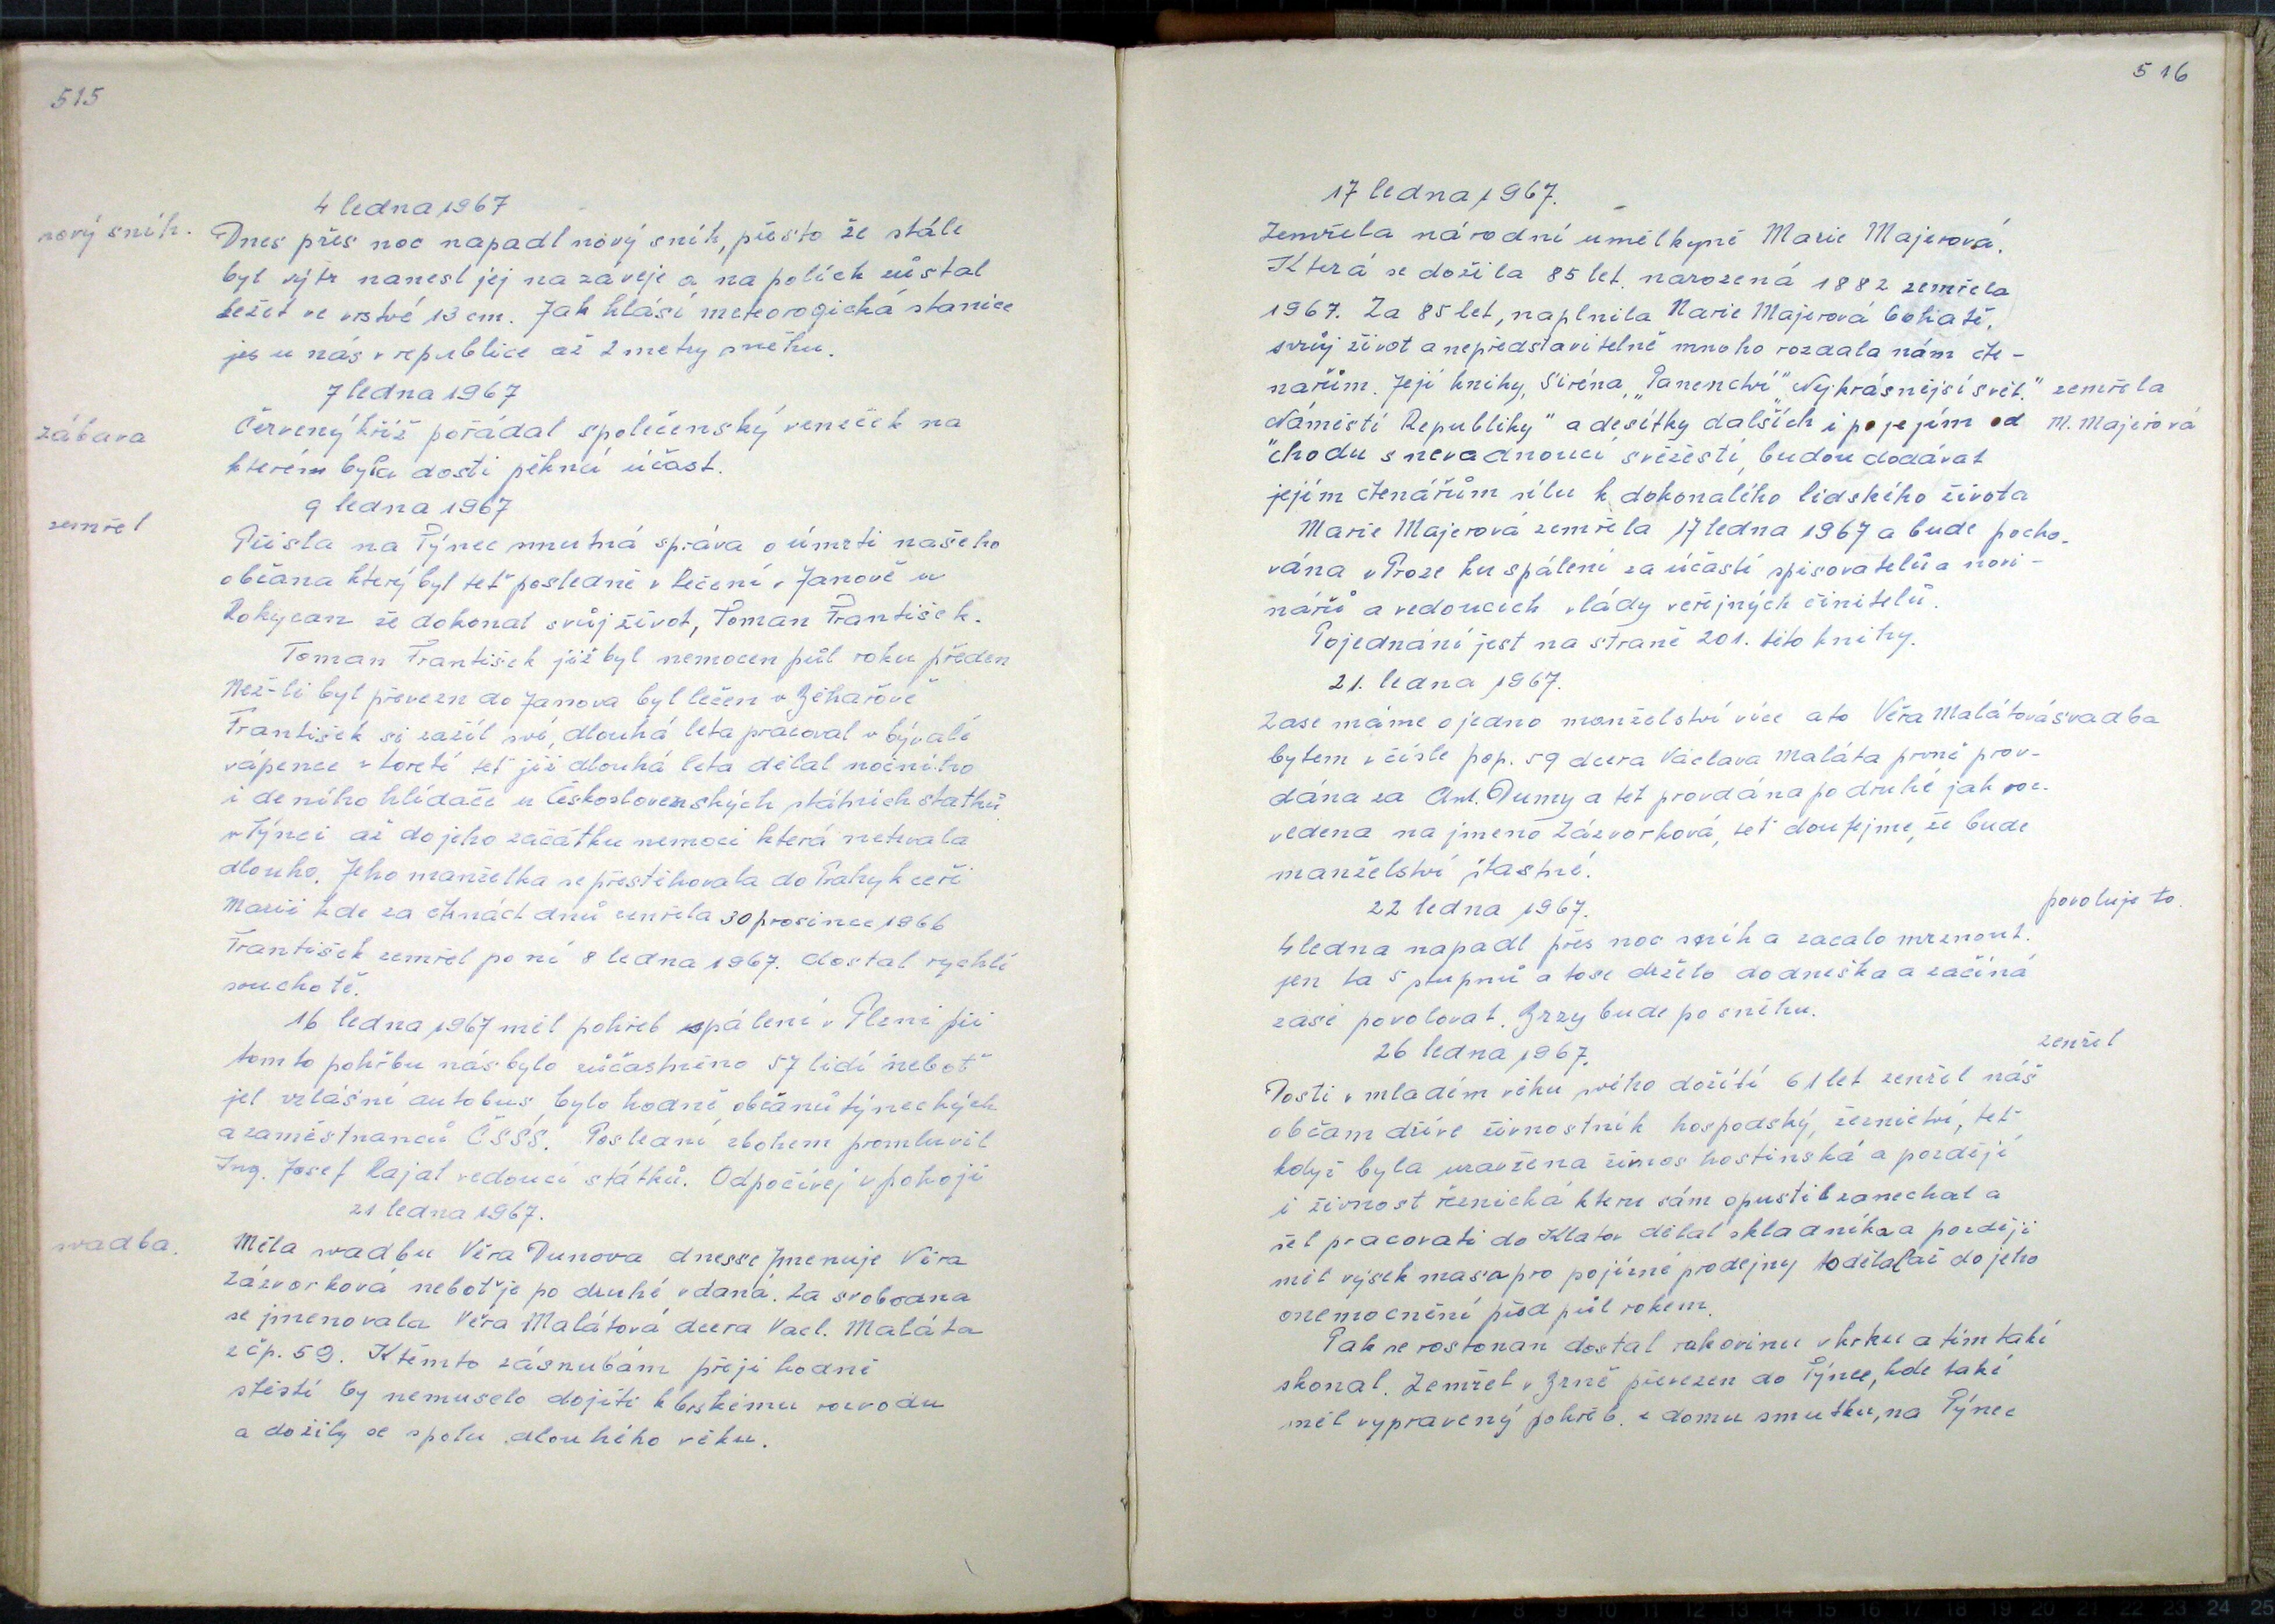 515
4 ledna 1967
nový sníh.
Dnes přes noc napadl nový sníh, přesto že stále
byl výtr nanesl jej na záveje a na polích zůstal
ležet ve vrstvé 13 cm. Jak hlásí meteorogická stanice
jes u nás v republice až 2 metry sněhu.
7 ledna 1967
zábava
Červený kříž pořádal společenský veneček na
kterém byla dosti pěkná účast.
9 ledna 1967
zemřel
Přišla na Týnec smutná správa o úmrti našeho
občana který byl teť posledně v lečení v Janově u
Rokycan že dokonal svůj život, Toman František.
Toman František již byl nemocen půl roku předen
Než-li byl převezn do Janova byl lečen v Beharově
František si zažil své, dlouhá leta pracoval v bývalé
vápence v Loretě teť již dlouhá leta dělal nočního
i deního hlídače u Československých státních statků
v Týnci až do jeho začátku nemoci která netrvala
dlouho. Jeho manželka se přestihovala do Prahy k ceři
Marii kde za čtrnáct dnů zemřela 30 prosince 1966
František zemřel po ní 8 ledna 1967. dostal rychlé
souchotě.
16 ledna 1967 měl pohřeb spálení v Plzni při
tomto pohřbu nás bylo zůčastněno 57 lidí neboť
jel vzlášní autobus, bylo hodně občanů týneckých
a zaměstnanců ČSSS. Poslední zbohem promluvil
Ing. Josef Rajal vedoucí státků. Odpočívej v pokoji
21 ledna 1967.
svadba.
Měla svadbu Věra Dunova dnes se Jmenuje Věra
Zázvorková neboť je po druhé vdaná. Za svobodna
se jmenovala Věra Malátová dcera Vacl. Maláta
z čp. 59. Ktěmto zásnubám přeji hodně
stěstí by nemuselo dojíti k brskému rozvodu
a dožily se spolu dlouhého věku.
516
17 ledna 1967.
Zemřela národní umělkyně Marie Majerová.
Která se dožila 85 let. narozená 1882 zemřela
1967. Za 85 let, naplnila Marie Majerová bohatě,
svůj život a nepředstavitelně mnoho rozdala nám čte-
nařům. Její knihy, Siréna, "Panenství" "Nejkrásnější svět." zemřela
Náměstí Republiky" a desítky dalších i po jejím od M. Majerová
"chodu s nevadnoucí svěžestí, budou dodávat
jejím čtenářům sílu k dokonalého lidského života
Marie Majerová zemřela 17 ledna 1967 a bude pocho-
vána v Praze ku spálení za účasti spisovatelů a novi-
nářů a vedoucích vlády veřejných činitelů.
Pojednání jest na straně 201. této knihy.
21. ledna 1967.
Zase máme o jedno manželství více a to Věra Malátová svadba
bytem v čísle pop. 59 dcera Václava Maláta prvně prov-
dána za Ant. Dumy a teť provdána po druhé jak roz-
vedena na jmeno Zázvorková, teť doufejme, že bude
manželství šťastné.
22 ledna 1967.
povoluje to.
4 ledna napadl přes noc sníh a zacalo mrznout.
jen ta 5 stupnů a tose drželo do dneška a začíná
zase povolovat. Brzy bude po sněhu.
26 ledna 1967.
zenřel
Dosti v mladém věku svého dožití 61 let zenřel náš
občam dříve živnostník hospodský, řeznictví, teť
když byla uzavřena živnos hostinská a pozdějí
i živnost řeznická kteru sám opustil zanechal a
šel pracovati do Klatov dělal skladníka a pozděj
měl výsek masa pro pojízné prodejny to dělal až do jeho
onemocnění před půl rokem.
Pak se rostonan dostal rakovinu v krku a tím také
skonal. Zemřel v Brně převezen do Týnce, kde také
měl vypravený pohřeb. z domu smutku, na Týnec